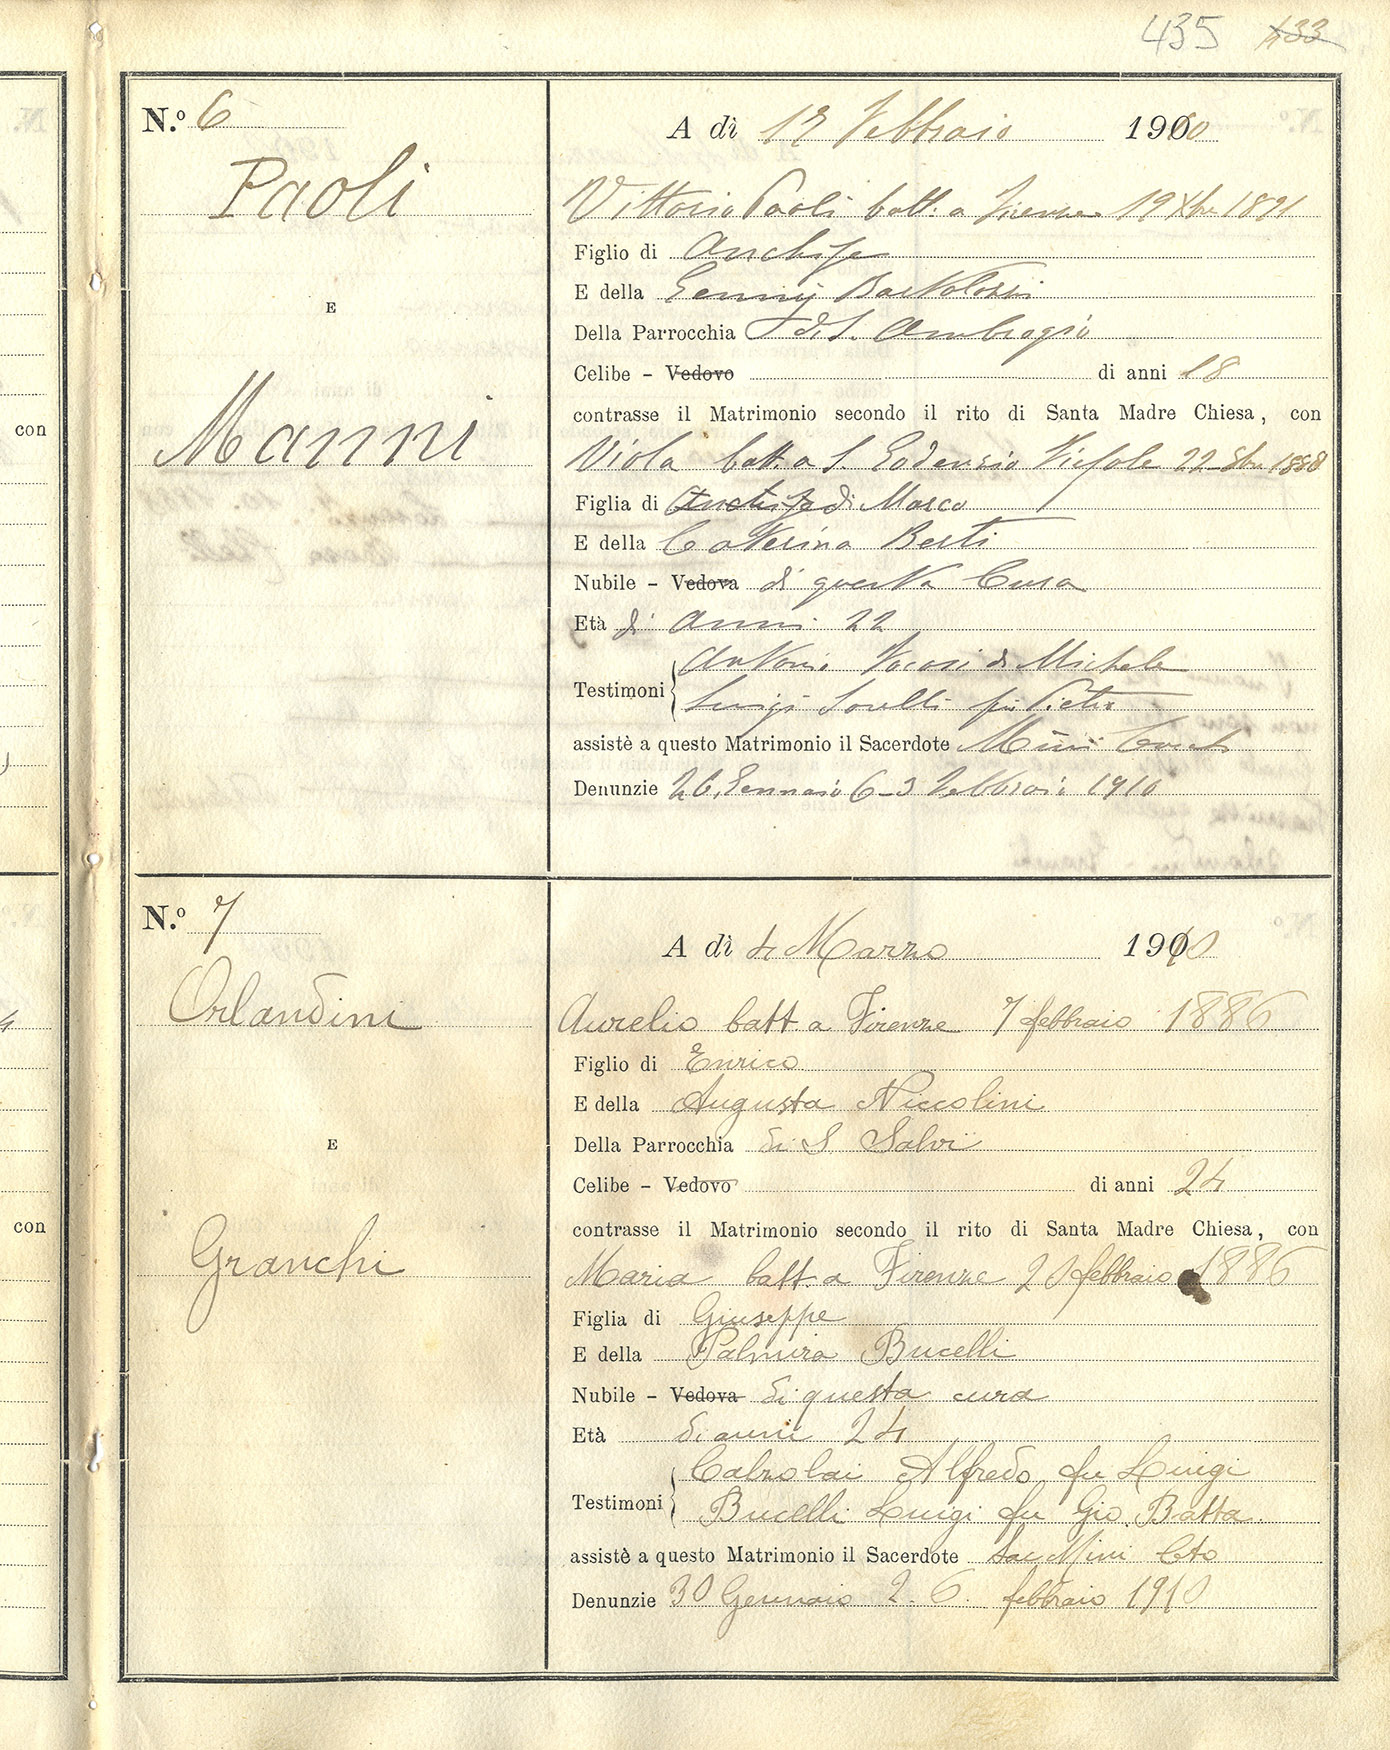 435 433
N.º 6
Paoli
E
Manni
A dì 12 Febbraio 1910
Vittorio Paoli batt: a Firenze 19 Xbre 1891
Figlio di Anchise
E della Genny Bartolozzi
Della Parrocchia di S. Ambrogio
Celibe - Vedovo di anni 18
contrasse il Matrimonio secondo il rito di Santa Madre Chiesa, con
Viola batt. a S. Godenzio Fiesole 22 8bre 1888
Figlia di Anchise di Marco
E della Caterina Berti
Nubile - Vedova di questa Cura
Età di Anni 22
Testimoni
Antonio di Michele
Luigi fu Pietro
assistè a questo Matrimonio il Sacerdote Mini
Denunzie 26. Gennaio 6-3 Febbraio 1910
N.º 7
Orlandini
E
Granchi
A dì 4 Marzo 1910
Aurelio batt a Firenze 7 febbraio 1886
Figlio di Enrico
E della Augusta Niccolini
Della Parrocchia di S Salvi
Celibe - Vedovo di anni 24
contrasse il Matrimonio secondo il rito di Santa Madre Chiesa, con
Maria batt. a Firenze 20 febbraio 1886
Figlia di Giuseppe
E della Palmira Bucelli
Nubile - Vedova di questa cura
Età di anni 24
Testimoni
Calzolai Alfredo fu Luigi
Bucelli Luigi fu Gio. Batta.
assistè a questo Matrimonio il Sacerdote Sac Mini Cto
Denunzie 30 Gennaio 2. 6. febbraio 1910
con
con